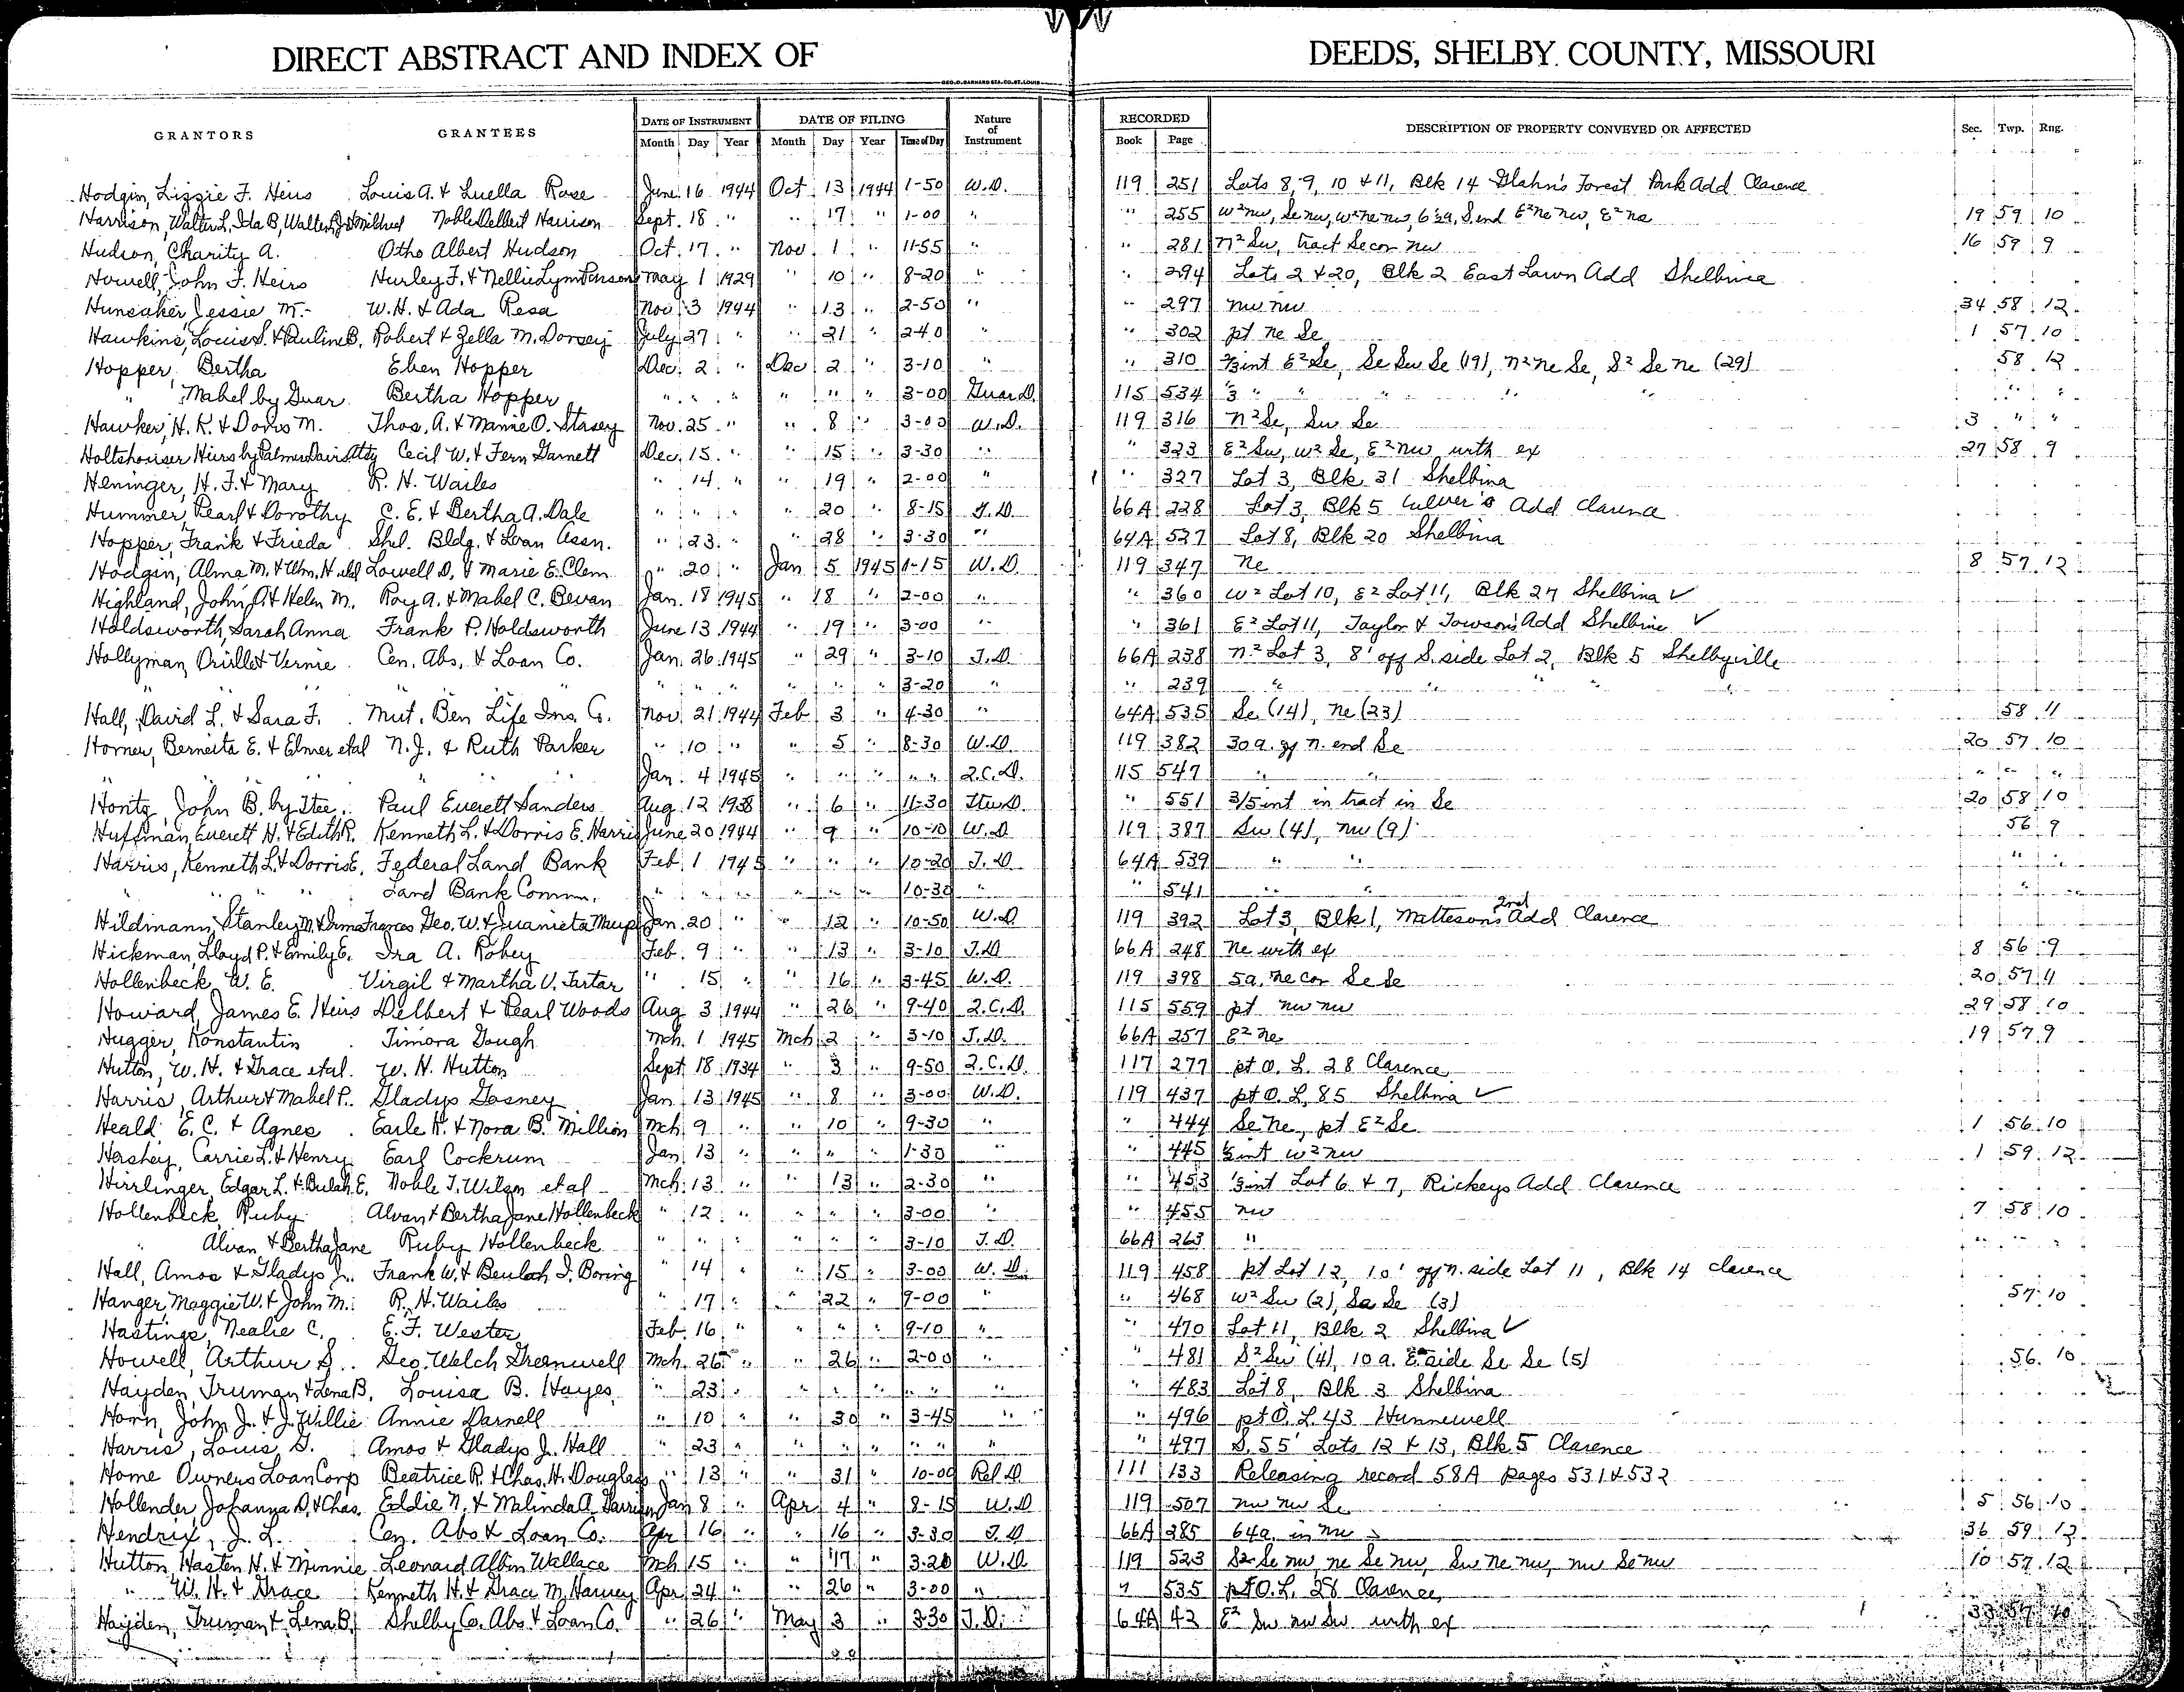 DIRECT ABSTRACT AND INDEX OF DEEDS, SHELBY COUNTY, MISSOURI
GEO. D. BARNARD STA. CO. ST. LOUIS
GRANTORS GRANTEES DATE OF INSTRUMENT DATE OF FILING Nature of Instrument RECORDED DESCRIPTION OF PROPERTY CONVEYED OR AFFECTED Sec. Twp. Rng.
Month Day Year Month Day Year Time of Day Book Page
Hodgin, Lizzie F. Heirs Louis A. & Luella Rose June 16 1944 Oct 13 1944 1-50 W.D. 119 251 Lots 8, 9, 10 & 11, Blk 14 Glahn's Forest Park Add Clarence
Harrison, Walter L. Ida B, Walter Jr & Mildred Noble Delbert Harrison Sept. 18 " " 17 " 1-00 " " 255 W²nw, Se nw, W²ne nw, S. end E²ne nw, E²ne 19 59 10
Hudson, Charity A. Otho Albert Hudson Oct. 17 " Nov 1 " 11-55 " " 281 N²Sw, tract Secor nw 16 59 9
Howell, John F. Heirs Hurley F. & Nellie Lynn Parsons May 1 1929 " 10 " 8-20 " " 294 Lots 2 & 20, Blk 2 East Lawn Add Shelbina
Hunsaker, Jessie M. W.H. & Ada Resa Nov 3 1944 " 13 " 2-50 " " 297 nw nw 34 58 12
Hawkins, Louis S. & Pauline B. Robert & Zella M. Dorsey July 27 " " 21 " 2-40 " " 302 pt ne Se 1 57 10
Hopper, Bertha Eben Hopper Dec. 2 " Dec 2 " 3-10 " " 310 ⅔int E²Se, Se Sw Se (19), N²ne Se, S²Se ne (29) 58 12
" Mabel by Guar. Bertha Hopper " " " " " " 3-00 Guar D. 115 534 ⅓ " " " " " " "
Hawker, H.K. & Doris M. Thos. A. & Mamie O. Stasey Nov. 25 " " 8 " 3-00 W.D. 119 316 N²Se, Sw Se 3 " "
Holtshouser Heirs by Palmer Davis Atty Cecil W. & Fern Garnett Dec. 15 " " 15 " 3-30 " " 323 E²Sw, W²Se, E²nw with ex 27 58 9
Heninger, H.F. & Mary R.H. Wailes " 14 " " 19 " 2-00 " " 327 Lot 3, Blk 31 Shelbina
Hummer, Pearl & Dorothy C.E. & Bertha A. Dale " " " " 20 " 8-15 T.D. 66A 228 Lot 3, Blk 5 Culver's Add Clarence
Hopper, Frank & Frieda Shel. Bldg. & Loan Assn. " 23 " " 28 " 3-30 " 64A 527 Lot 8, Blk 20 Shelbina
Hodgin, Alma M. & Wm. H. Lowell D. & Marie E. Clem " 20 " Jan 5 1945 1-15 W.D. 119 347 ne 8 57 12
Highland, John A. & Helen M. Roy A. & Mabel C. Bevan Jan. 18 1945 " 18 " 2-00 " " 360 W² Lot 10, E² Lot 11, Blk 27 Shelbina ✓
Holdsworth, Sarah Anna Frank P. Holdsworth June 13 1944 " 19 " 3-00 " " 361 E² Lot 11, Taylor & Towson's Add Shelbina ✓
Hollyman, Orville & Vernie Cen. Abs. & Loan Co. Jan. 26 1945 " 29 " 3-10 T.D. 66A 238 N² Lot 3, 8' off S. side Lot 2, Blk 5 Shelbyville
" " " " " " " " " " 3-20 " " 239 " " " "
Hall, David L. & Sara F. Mut. Ben Life Ins. Co. Nov. 21 1944 Feb 3 " 4-30 " 64A 535 Se (14), Ne (23) 58 11
Horner, Berneita E. & Elmer etal N.J. & Ruth Parker " 10 " " 5 " 8-30 W.D. 119 382 30 a. of N. end Se 20 57 10
" " " " Jan. 4 1945 " " " " " Q.C.D. 115 547 " " " " "
Hontz, John B. by Stee. Paul Everett Sanders Aug 12 1938 " 6 " 11-30 115 551 3/5 int in tract in Se 20 58 10
Huffman, Everett H. & Edith R. Kenneth L. & Dorris E. Harris June 20 1944 " 9 " 10-10 W.D. 119 387 Sw (4), nw (9) 56 9
Harris, Kenneth L. & Dorris E. Federal Land Bank Feb. 1 1945 " " " 10-20 T.D. 64A 539 " " " "
" " " Land Bank Comm. " " " " " " 10-30 " " 541 " " " "
Hildmann, Stanley M. & Irma Frances Geo. W. & Juanieta Maupin Jan. 20 " " 12 " 10-50 W.D. 119 392 Lot 3, Blk 1, Matteson's 2nd Add Clarence
Hickman, Lloyd P. & Emily E. Ira A. Robey Feb. 9 " " 13 " 3-10 T.D. 66A 248 Ne with ex 8 56 9
Hollenbeck, W.E. Virgil & Martha V. Tartar " 15 " " 16 " 3-45 W.D. 119 398 5a, ne cor Se Se 20 57 11
Howard, James E. Heirs Delbert & Pearl Woods Aug 3 1944 " 26 " 9-40 Q.C.D. 115 559 pt nw nw 29 58 10
Hugger, Konstantin Timora Gough Mch. 1 1945 Mch 2 " 3-10 T.D. 66A 257 E² ne 19 57 9
Hutton, W.H. & Grace etal. W.H. Hutton Sept 18 1934 " 3 " 9-50 Q.C.D. 117 277 pt O.L. 28 Clarence
Harris, Arthur & Mabel P. Gladys Gosney Jan 13 1945 " 8 " 3-00 W.D. 119 437 pt O.L. 85 Shelbina ✓
Heald, E.C. & Agnes Earle H. & Nora B. Million Mch 9 " " 10 " 9-30 " " 444 Se ne, pt E²Se 1 56 10
Hershey, Carrie L. & Henry Earl Cockrum Jan 13 " " " " 1-30 " " 445 int W²nw 1 59 12
Hirrlinger, Edgar L. & Bulah E. Noble T. Wilson et al Mch. 13 " " 13 " 2-30 " " 453 int Lot 6 & 7, Rickeys Add Clarence
Hollenbeck, Ruby Alvan & Bertha Jane Hollenbeck " 12 " " " " 3-00 " " 455 nw 7 58 10
" Alvan & Bertha Jane Ruby Hollenbeck " " " " " " 3-10 T.D. 66A 263 " " " "
Hall, Amos & Gladys J. Frank W. & Beulah I. Boring " 14 " " 15 " 3-00 W.D. 119 458 pt Lot 12, 10' off N. side Lot 11, Blk 14 Clarence
Hanger, Maggie W. & John M. R.H. Wailes " 17 " " 22 " 9-00 " " 468 W² Sw (2), Se Se (3) 57 10
Hastings, Nealie C. E.F. Wester Feb. 16 " " " " 9-10 " " 470 Lot 11, Blk 2 Shelbina ✓
Howell, Arthur S. Geo. Welch Greenwell Mch. 26 " " 26 " 2-00 " " 481 S²Sw (4), 10 a. E side Se Se (5) 56 10
Hayden, Truman & Lena B. Louisa B. Hayes " 23 " " " " " " " 483 Lot 8, Blk 3 Shelbina
Horn, John J. & J. Willie Annie Darnell " 10 " " 30 " 3-45 " " 496 pt O.L. 43 Hunnewell
Harris, Louis G. Amos & Gladys J. Hall " 23 " " " " " " " 497 S. 55' Lots 12 & 13, Blk 5 Clarence
Home Owners Loan Corp Beatrice R. & Chas. H. Douglass " 13 " " 31 " 10-00 Rel D. 111 133 Releasing record 58A pages 531 & 532
Hollender, Johanna D. & Chas. Eddie N. & Malinda A. Jan 8 " Apr 4 " 8-15 W.D. 119 507 nw nw Se 5 56 10
Hendrix, J.L. Cen. Abs & Loan Co. Apr 16 " " 16 " 3-30 T.D. 66A 285 64a. in nw 36 59 12
Hutton, Hasten H. & Minnie Leonard Albin Wallace Mch 15 " " 17 " 3-20 W.D. 119 523 S² Se nw, ne Se nw, Sw ne nw, nw Se nw 10 57 12
" W.H. & Grace Kenneth H. & Grace M. Harvey Apr 24 " " 26 " 3-00 " " 535 pt O.L. 28 Clarence
Hayden, Truman & Lena B. Shelby Co. Abs. & Loan Co. " 26 " May 3 " 3-30 T.D. 64A 42 E² Sw nw Sw with ex 33 57 10